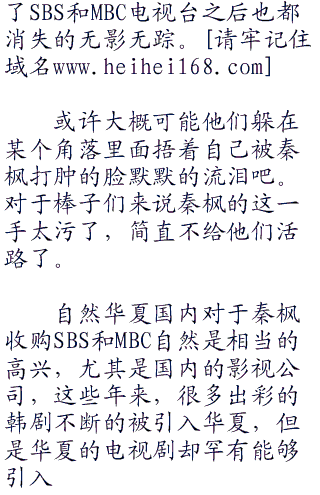 了SBS和MBC电视台之后也都
消失的无影无踪。[请牢记住
域名www.heihei168.com]
或许大概可能他们躲在
某个角落里面捂着自己被秦
枫打肿的脸默默的流泪吧。
对于棒子们来说秦枫的这一
手太污了，简直不给他们活
路了。
自然华夏国内对于秦枫
收购SBS和MBC自然是相当的
高兴，尤其是国内的影视公
司，这些年来，很多出彩的
韩剧不断的被引入华夏，但
是华夏的电视剧却罕有能够
引入